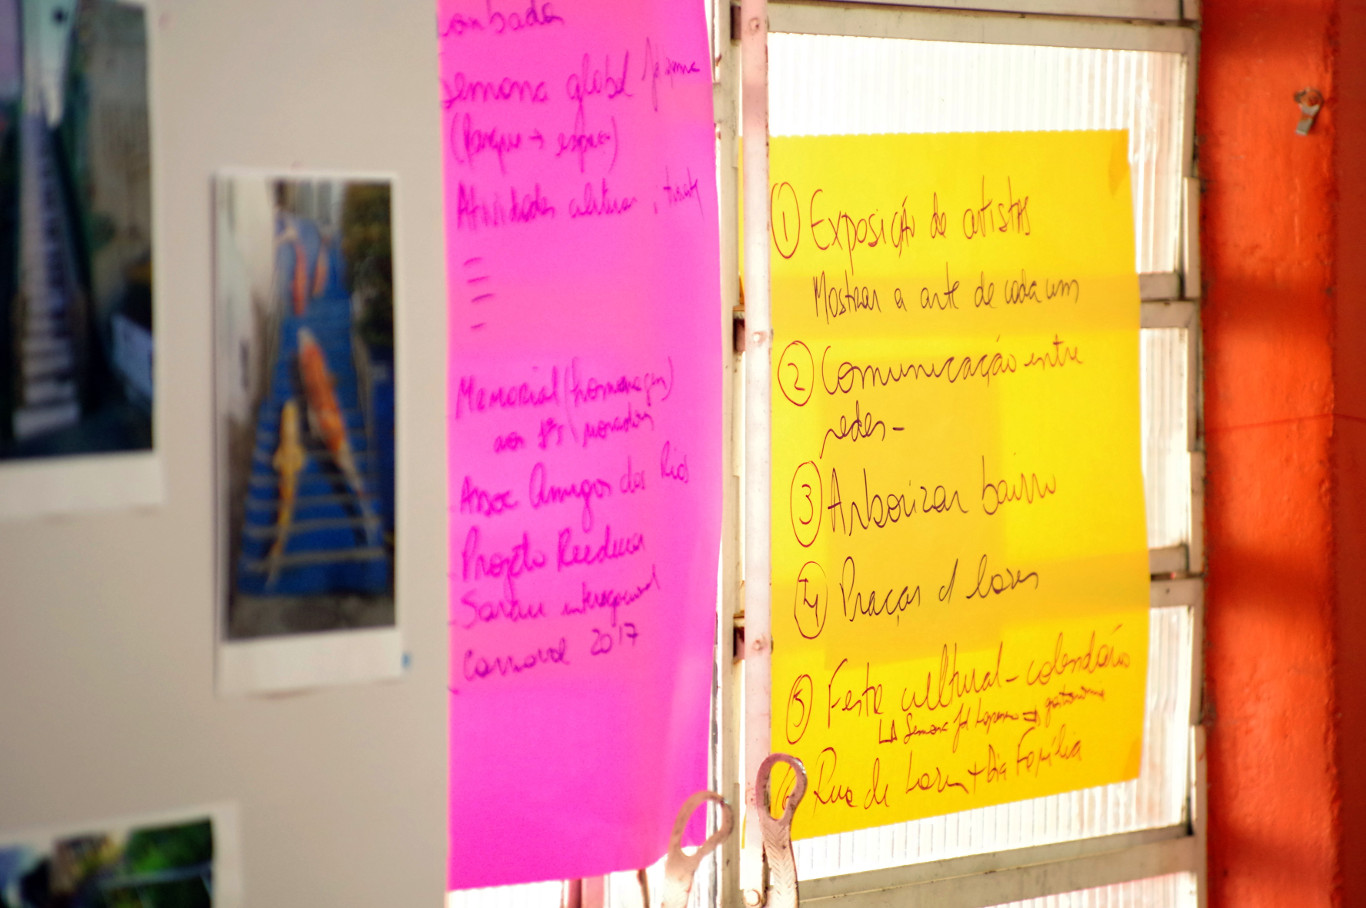 semana global
Atividades
Memorial (homenagem)
aos 1ºs moradores
Assoc Amigos dos Rios
Projeto Reeducar
Sarau
Carnaval 2017
① Exposição de artistas
Mostrar a arte de cada um
② Comunicação entre
redes-
③ Arborizar bairro
④ Praças d lazer
⑤ Festa cultural - calendário
Semana → gastronomia
Rua de Lazer + Dia Família